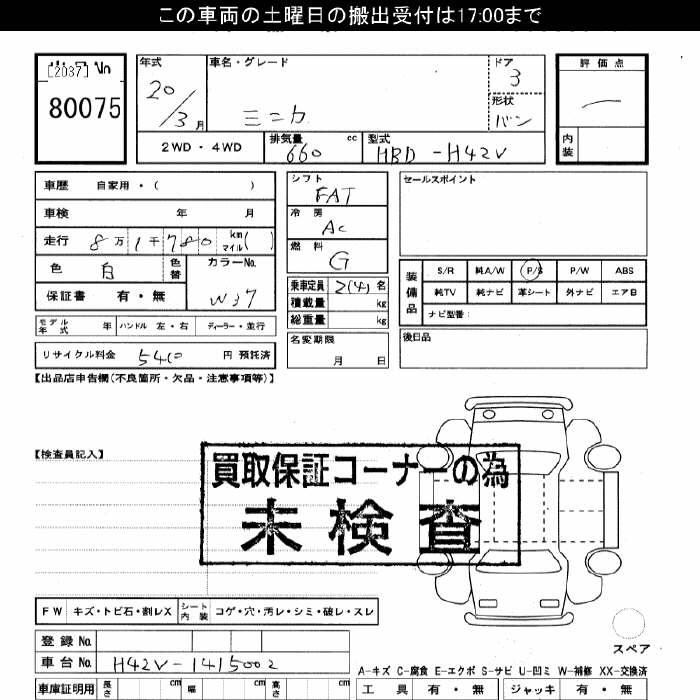 この車両の土曜日の搬出受付は17:00まで
[2037]
80075
年式
20/3 月
車名・グレード
ミニカ
ドア
3
形状
バン
評価点
内装
2WD・4WD
排気量 660 cc
型式 HBD-H42V
車歴 自家用・( )
車検 年 月
走行 8万1千780 km マイル ( )
色 白 色替
カラーNo. W37
保証書 有・無
モデル年式 年 ハンドル 左・右 ディーラー・並行
リサイクル料金 円 預託済
シフト
FAT
冷房
AC
燃料
G
乗車定員 2(4) 名
積載量 kg
総重量 kg
名変期限
月 日
セールスポイント
装備品
S/R 純A/W P/S P/W ABS
純TV 純ナビ 革シート 外ナビ エアB
ナビ型番:
後日品
【出品店申告欄(不良箇所・欠品・注意事項等)】
【検査員記入】
買取保証コーナーの為
未検査
FW キズ・トビ石・割レX シート内装 コゲ・穴・汚レ・シミ・破レ・スレ
スペア
登録No.
車台No. H42V-1415002
車庫証明用 長さ cm 幅 cm 高さ cm
A-キズ C-腐食 E-エクボ S-サビ U-凹ミ W-補修 XX-交換済
工具 有・無 ジャッキ 有・無